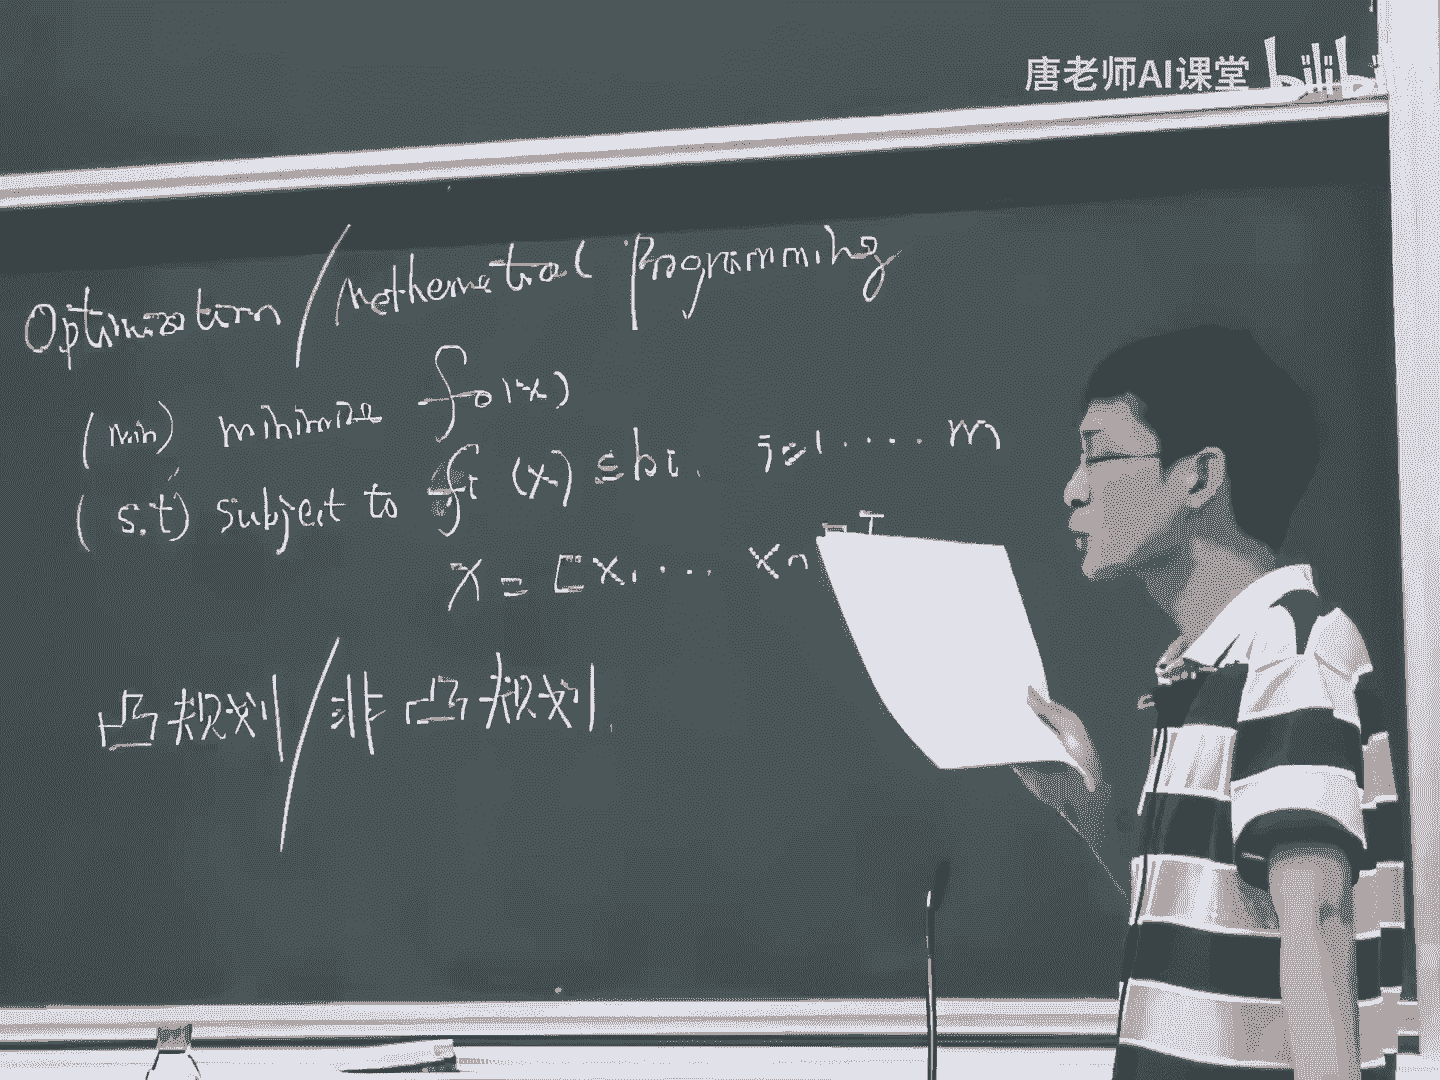 唐老师AI课堂 bilibi
Optimization / Mathematical Programming
(min) minimize f₀(x)
(s.t) subject to fᵢ(x) ≤ bᵢ. i=1 .... m
x = [x₁ .... xₙ]ᵀ
凸规划 / 非凸规划.